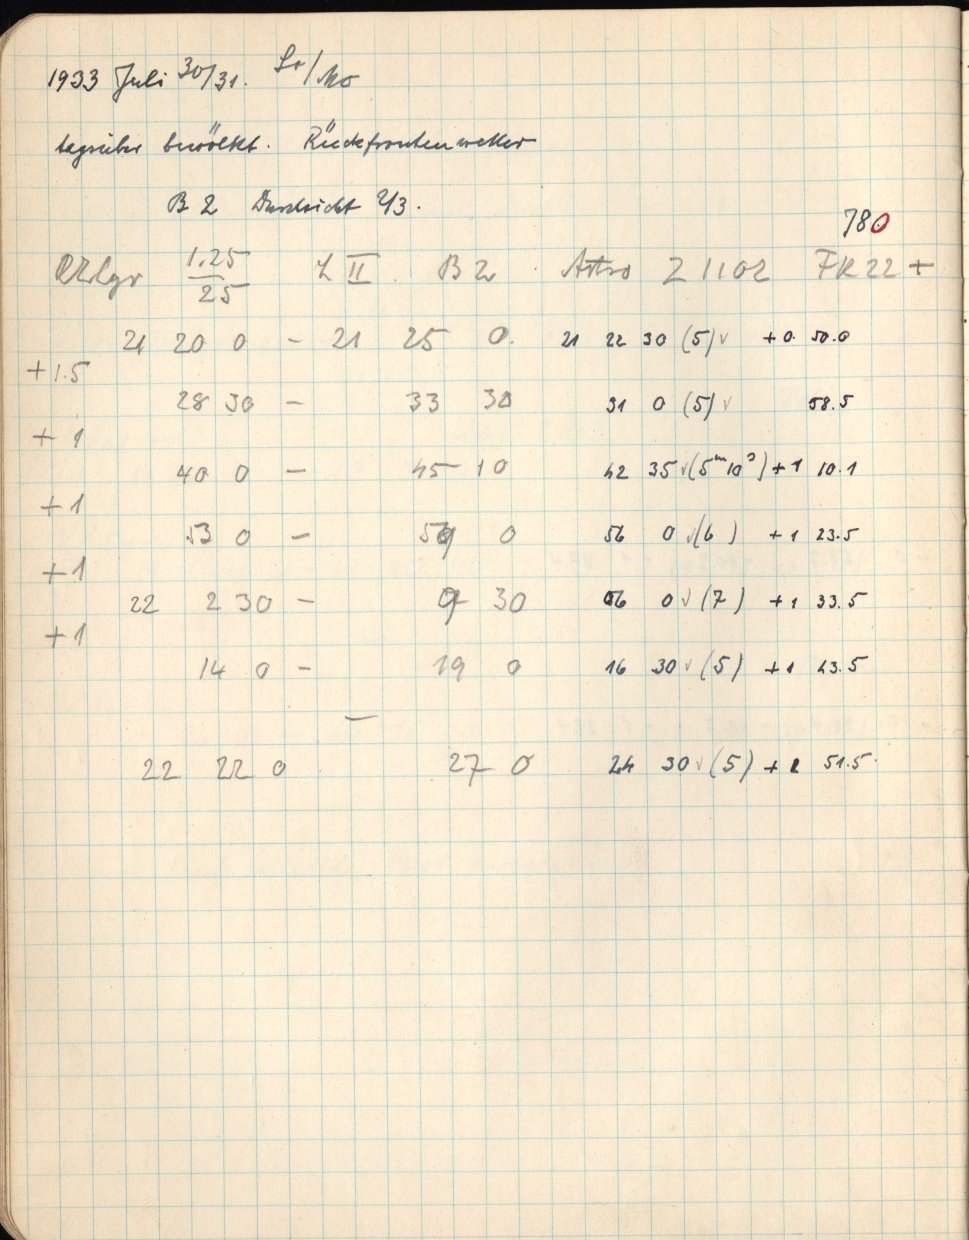 1933 Juli 30/31. So/Mo
tagsüber bewölkt. Rückfrontenwetter
B 2 Durchsicht 2/3.
780
1.25/25 L II B 2 Astro Z 1102 FK 22 +
21 20 0 - 21 25 0. 21 22 30 (5)√ +0. 50.0
+1.5
28 30 - 33 30 31 0 (5)√ 58.5
+ 1
40 0 - 45 10 42 35 √(5ᵐ10ˢ) +1 10.1
+1
53 0 - 59 0 56 0 √(6) +1 23.5
+1
22 2 30 - 9 30 06 0 √(7) +1 33.5
+1
14 0 - 19 0 16 30 √(5) +1 43.5
—
22 22 0 27 0 24 30 √(5) + 1 51.5